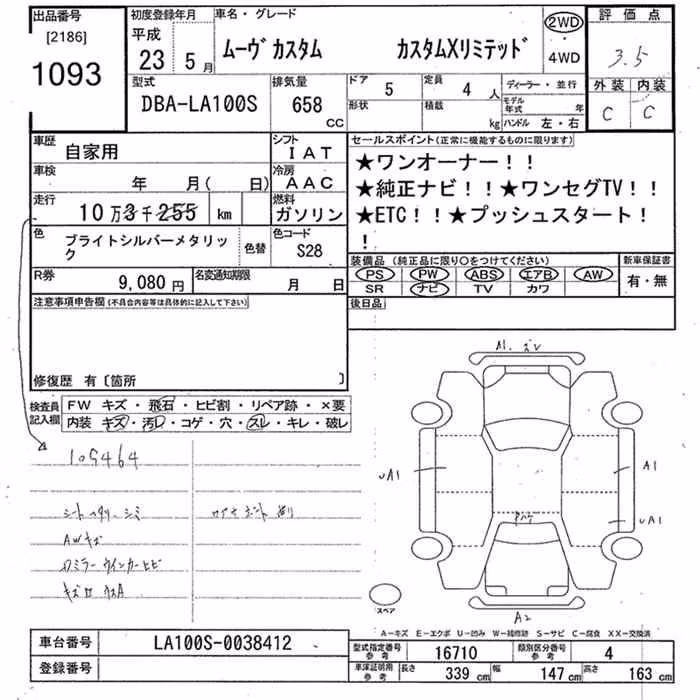 出品番号 初度登録年月 車名・グレード 評価点
[2186] 平成 23 年 5月 ムーヴカスタム カスタムXリミテッド 2WD ・ 4WD 3.5
1093
型式 排気量 ドア 5 定員 4 人 ディーラー・並行 外装 内装
DBA-LA100S 658 CC 形状 積載 kg モデル年式 年 C C
ハンドル 左・右
車歴 自家用 シフト IAT セールスポイント(正常に機能するものに限ります)
車検 年 月( 日) 冷房 AAC ★ワンオーナー!!
走行 10万3千255 km 燃料 ガソリン ★純正ナビ!!★ワンセグTV!!
★ETC!!★プッシュスタート!
!
色 ブライトシルバーメタリック 色替 色コード S28
装備品(純正品に限り○をつけてください) 新車保証書
R券 9,080 円 名変通知期限 月 日 PS PW ABS エアB AW 有・無
SR ナビ TV カワ
注意事項申告欄(不具合内容等は具体的に記入して下さい) 後日品
修復歴 有〔箇所 〕
検査員記入欄 FW キズ・飛石・ヒビ割・リペア跡・×要
内装 キズ・汚レ・コゲ・穴・スレ・キレ・破レ
105464
シート シミ
AWキズ
ミラー ウインカーヒビ
A1
UA1 A1
UA1
A2
スペア
A-キズ E-エクボ U-凹み W-補修跡 S-サビ C-腐食 XX-交換済
車台番号 LA100S-0038412 型式指定番号 参考 16710 類別区分番号 参考 4
登録番号 車体証明用 参考 長さ 339 cm 幅 147 cm 高さ 163 cm